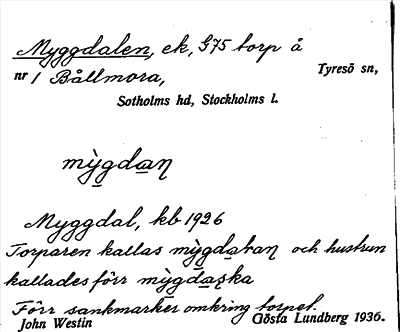 Myggdalen, ek, G75 torp å
nr 1 Bållmora, Tyresö sn,
Sotholms hd, Stockholms l.
mỳgdaɳ
Myggdal, kb 1926
Torparen kallas mỳgdataɳ och hustrun
kallades förr mỳgdaʂka
Förr sankmarker omkring torpet.
John Westin Gösta Lundberg 1936.